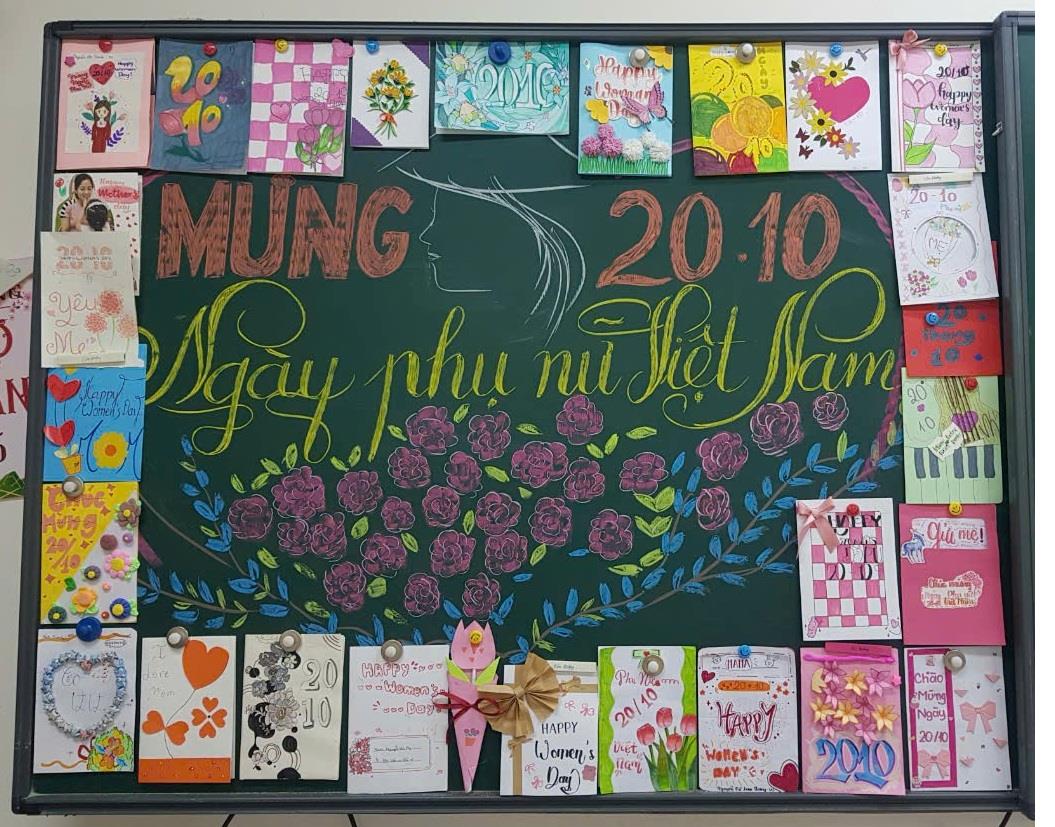 20/10
Happy
Women's
Day!
20
10
2010
Happy
Woman
Day
20
10
NGÀY
20/10
happy
women's
day
MỪNG 20.10
Ngày phụ nữ Việt Nam
Happy
Mother's
day
20-10
Yêu
Mẹ
Happy
Women's Day
Chúc
Mừng
20/10
20-10
MẸ
20
tháng
10
20
10
HAPPY
20
Gửi mẹ!
I
Love
Mom
20
10
HAPPY
Women's
Day
HAPPY
Women's
Day
Phụ Nữ
20/10
Việt
Nam
MAMA
20•10
HAPPY
WOMEN'S
DAY
2010
Chào
Mừng
Ngày
20/10